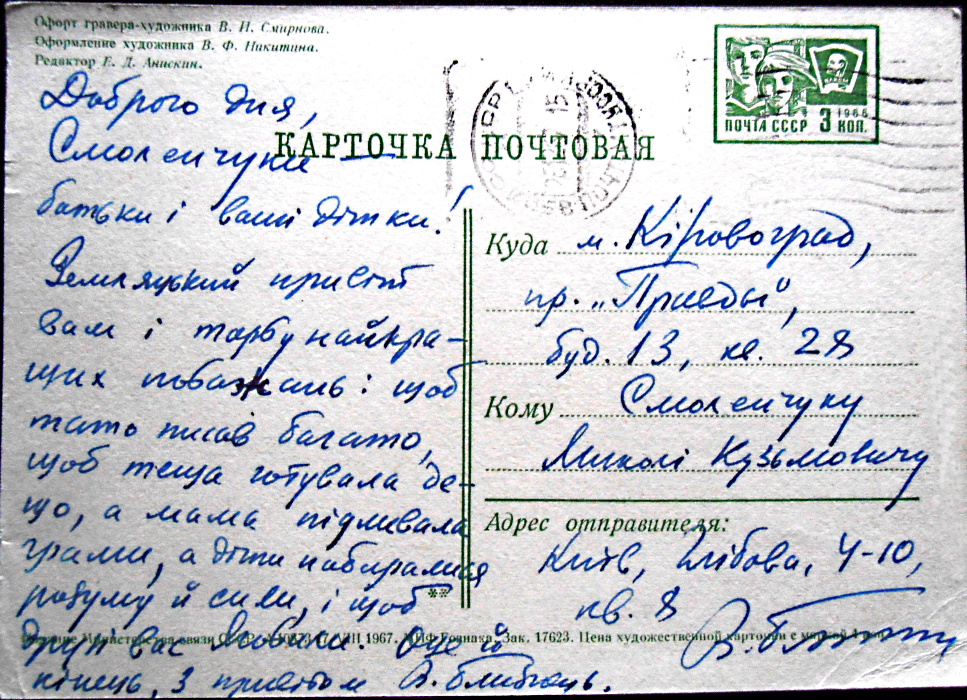 Офорт гравера-художника В. И. Смирнова.
Оформление художника В. Ф. Никитина.
Редактор Е. Д. Анискин.
Доброго дня,
Смоленчуки —
батьки і ваші дітки!
Земляцький привіт
вам і торбу найкра-
щих побажань: щоб
тато писав багато,
щоб теща готувала де-
що, а мама підливала
грами, а діти набиралися
розуму й сили, і щоб
друг вас любили. Оце й
кінець. З привітом В. Близнець.
КАРТОЧКА ПОЧТОВАЯ
ПОЧТА СССР 3 КОП.
1966
ВЛКСМ
Куда м. Кіровоград,
пр. „Правды",
буд. 13, кв. 28
Кому Смоленчуку
Миколі Кузьмовичу
Адрес отправителя:
Київ, Глібова, 4-10,
кв. 8
Министерства связи СССР. 17/VIII 1967. МПФ Гознака. Зак. 17623. Цена художественной карточки с маркой 4 коп.